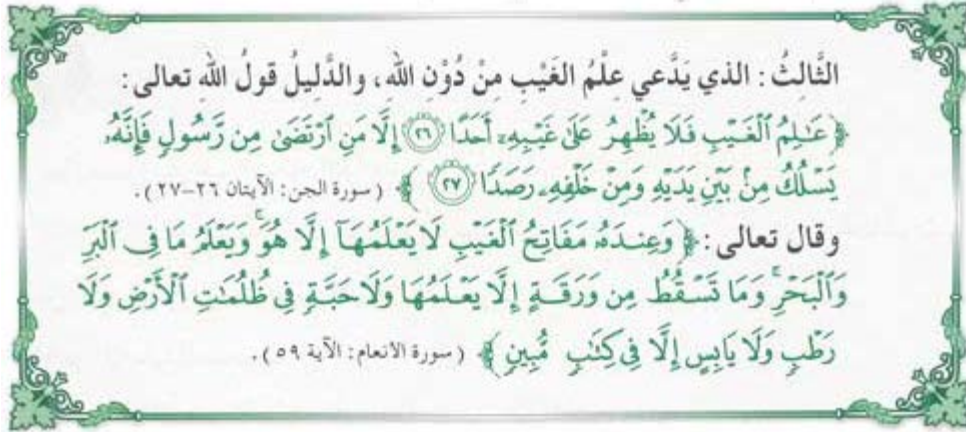 الثَّالِثُ: الذي يَدَّعي عِلْمُ الغَيْبِ مِنْ دُوْنِ اللهِ، والدَّلِيلُ قولُ اللهِ تعالى:
﴿عَـٰلِمُ ٱلْغَيْبِ فَلَا يُظْهِرُ عَلَىٰ غَيْبِهِۦٓ أَحَدًا ٢٦ إِلَّا مَنِ ٱرْتَضَىٰ مِن رَّسُولٍ فَإِنَّهُۥ
يَسْلُكُ مِنۢ بَيْنِ يَدَيْهِ وَمِنْ خَلْفِهِۦ رَصَدًا ٢٧﴾ (سورة الجن: الآيتان ٢٦-٢٧).
وقال تعالى: ﴿وَعِندَهُۥ مَفَاتِحُ ٱلْغَيْبِ لَا يَعْلَمُهَآ إِلَّا هُوَ ۚ وَيَعْلَمُ مَا فِى ٱلْبَرِّ
وَٱلْبَحْرِ ۚ وَمَا تَسْقُطُ مِن وَرَقَةٍ إِلَّا يَعْلَمُهَا وَلَا حَبَّةٍ فِى ظُلُمَـٰتِ ٱلْأَرْضِ وَلَا
رَطْبٍ وَلَا يَابِسٍ إِلَّا فِى كِتَـٰبٍ مُّبِينٍ﴾ (سورة الانعام: الآية ٥٩).